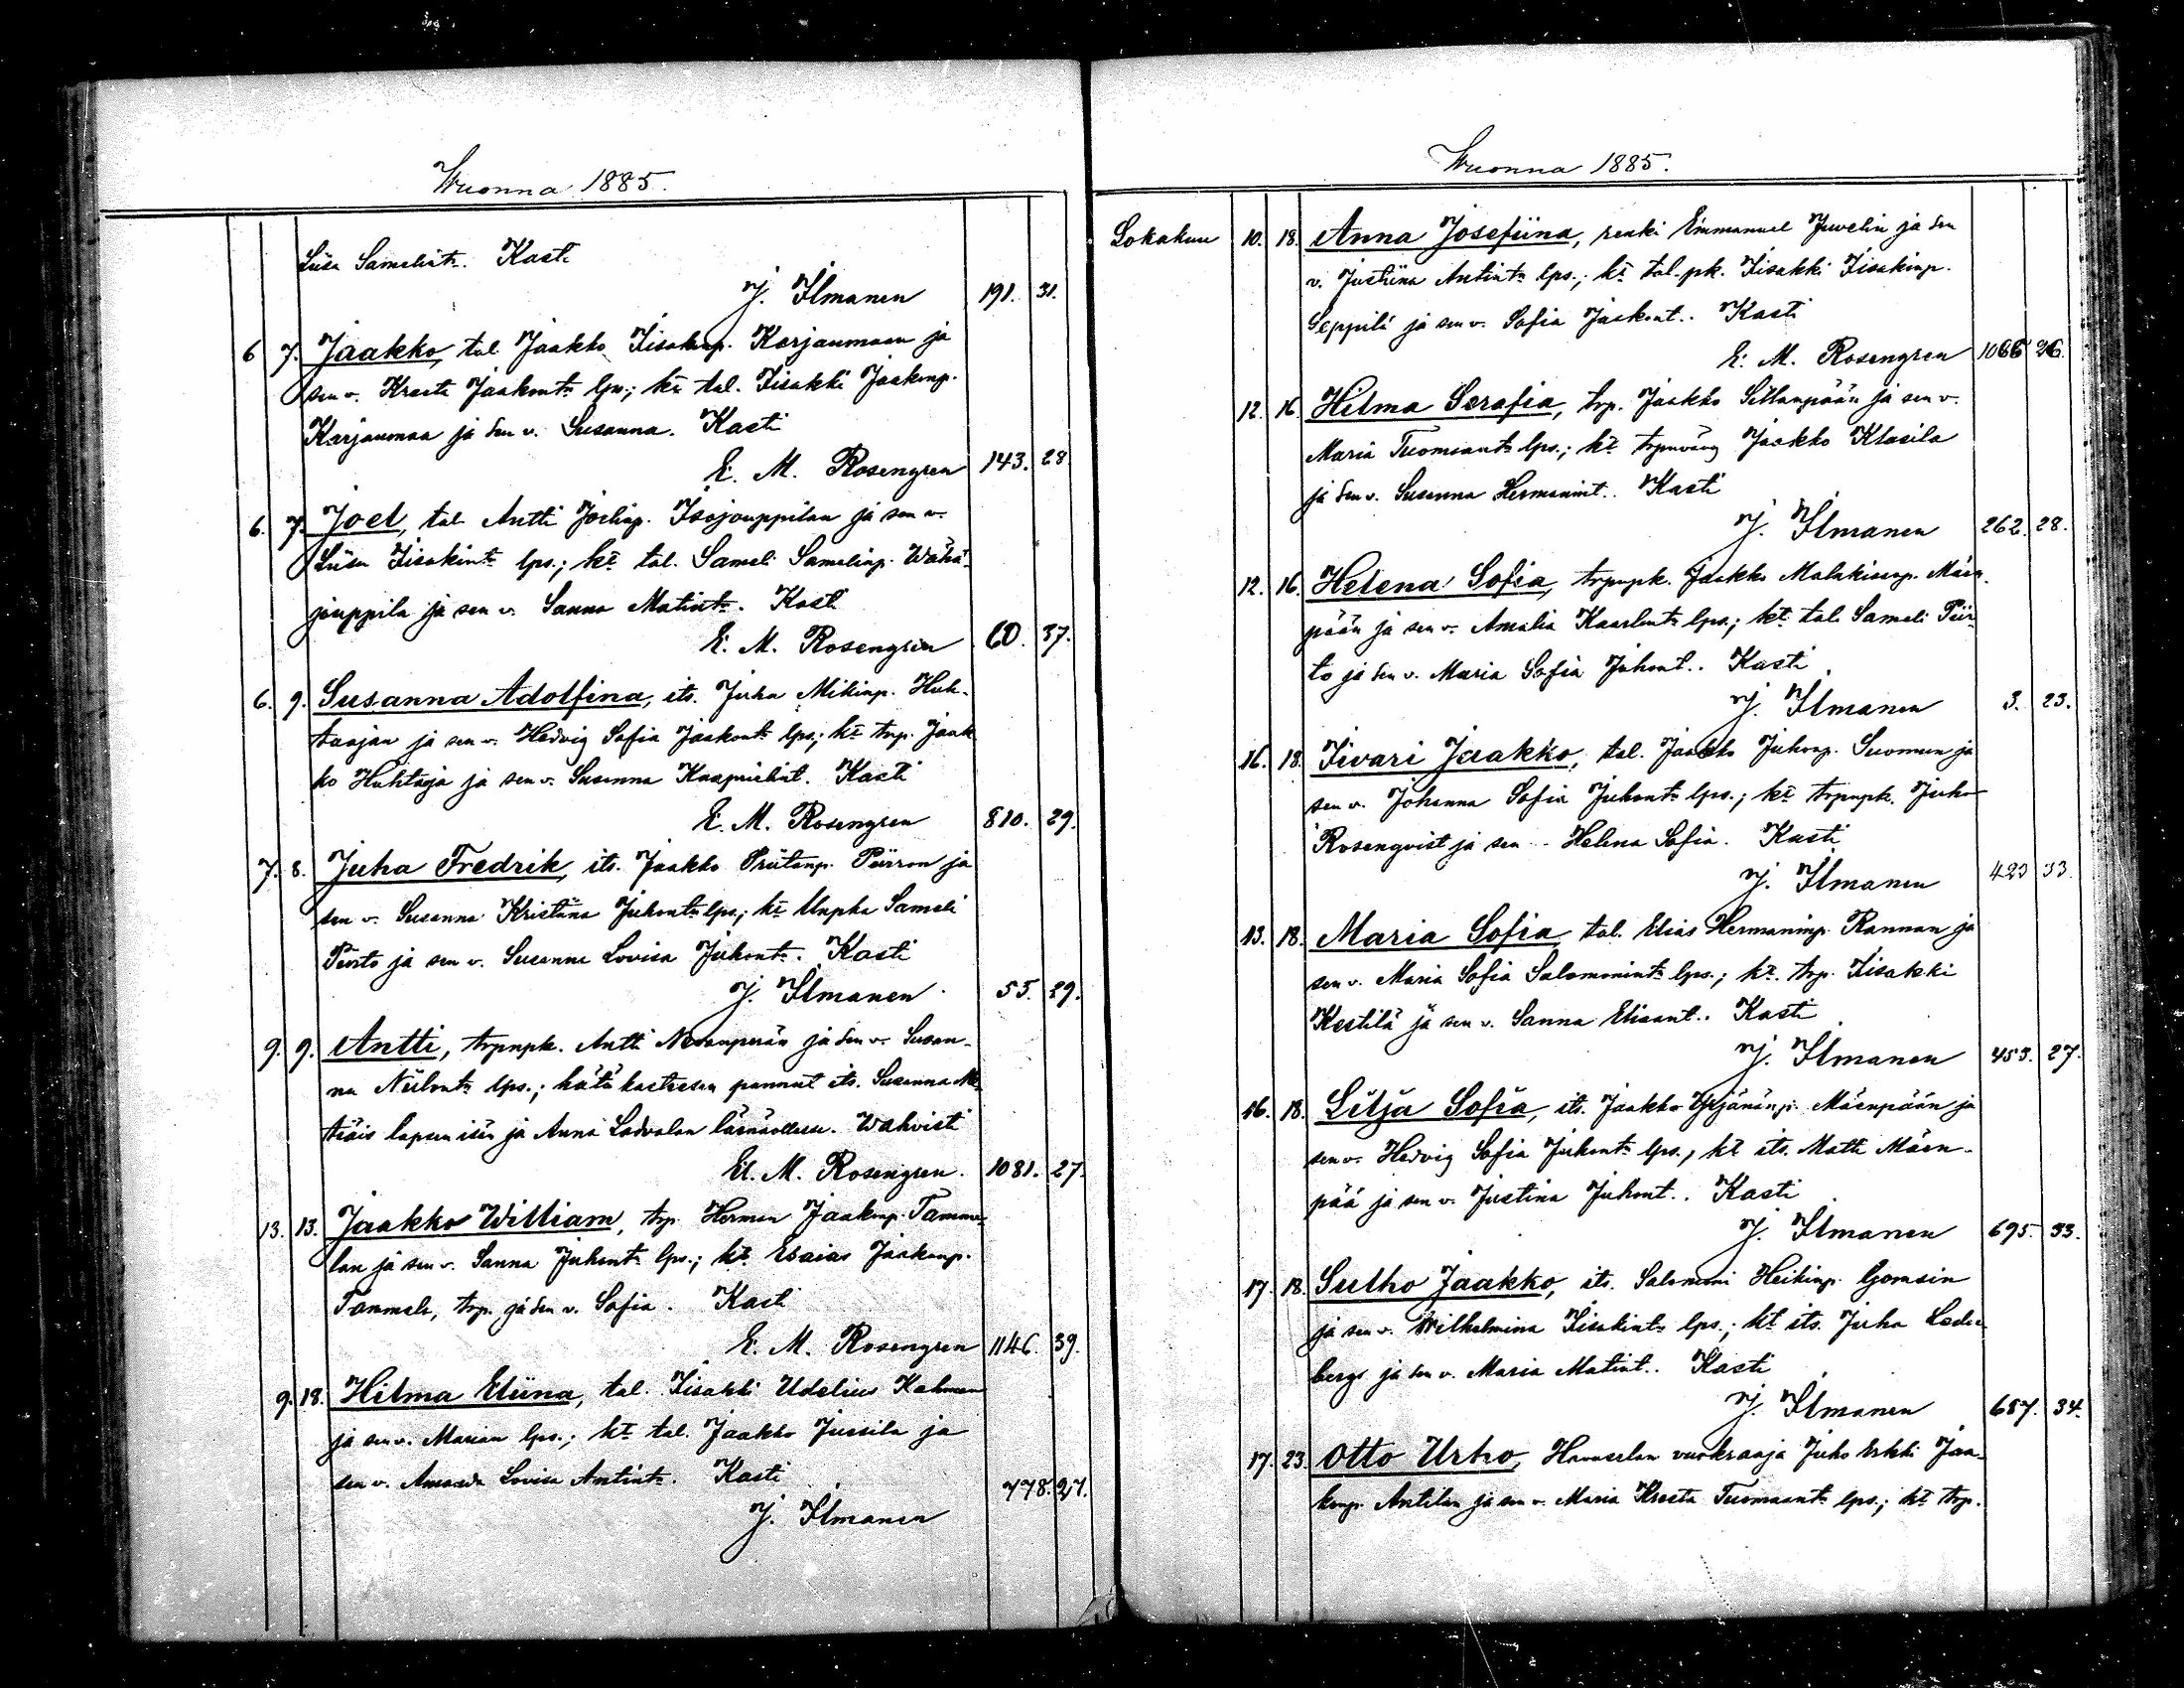 Wuonna 1885.
Liisa Samelint. Kasti
J. Ilmanen 191. 31.
6 7. Jaakko, tal. Jaakko Iisakinp. Karjanmaan ja
sen v. Kreeta Jaakont. lps.; kt. tal. Iisakki Jaakonp.
Karjanmaa ja sen v. Susanna. Kasti
E. M. Rosengren 143. 28
6. 7. Joel, tal. Antti Joelinp. Isojouppilan ja sen v.
Liisa Iisakint. lps.; kt. tal. Sameli Samelinp. Wähä-
jouppila ja sen v. Sanna Matint. Kasti
E. M. Rosengren 60. 37.
6. 9. Susanna Adolfina, its. Juha Mikinp. Huh-
taajan ja sen v. Hedvig Sofia Jaakont. lps.; kt. trp. Jaak
ko Huhtaja ja sen v. Susanna Kaaprielint. Kasti
E. M. Rosengren 810. 29.
7. 8. Juha Fredrik, its. Jaakko Priitanp. Piirron ja
sen v. Susanna Kristiina Juhont. lps.; kt. Sameli
Piirto ja sen v. Susanna Lovisa Juhont. Kasti
J. Ilmanen 55. 29.
9. 9. Antti, trpnpk. Antti Nevanperän ja sen v. Susan-
na Niilont. lps.; hätäkasteesen pannut its. Susanna
lapsen isän ja Anna Ladvalan läsnäollessa. Wahvisti
E. M. Rosengren. 1081. 27.
13. 13. Jaakko William, trp. Herman Jaakonp. Tamme-
lan ja sen v. Sanna Juhont. lps.; kt. Esaias Jaakonp.
Tammela, trp. ja sen v. Sofia. Kasti
E. M. Rosengren 1146. 39.
9. 18. Hilma Eliina, tal. Iisakki Udelius Kalman
ja sen v. Marian lps.; kt. tal. Jaakko Jussila ja
sen v. Amanda Lovisa Antint. Kasti
J. Ilmanen 778. 27.
Wuonna 1885.
Lokakuu 10. 18. Anna Josefiina, renki Emmanuel Juvelin ja sen
v. Justiina Antint. lps.; kt. tal. pk. Iisakki Iisakinp.
Seppilä ja sen v. Sofia Jaakont. Kasti
E. M. Rosengren 1066 26.
12. 16. Hilma Serafia, trp. Jaakko Sillanpään ja sen v.
Maria Tuomaant. lps.; kt. trpnvävy Jaakko Klasila
ja sen v. Susanna Hermanint. Kasti
J. Ilmanen 262. 28.
12. 16. Helena Sofia, trpnpk. Jaakko Malakiasp. Mäen-
pään ja sen v. Amalia Kaarlent. lps.; kt. tal. Sameli Piir-
to ja sen v. Maria Sofia Juhont. Kasti
J. Ilmanen 3. 23.
16. 18. Iivari Jaakko, tal. Jaakko Juhonp. Suomen ja
sen v. Johanna Sofia Juhont. lps.; kt. trpnpk. Juho
Rosenqvist ja sen v. Helena Sofia. Kasti
J. Ilmanen 423 33.
13. 18. Maria Sofia, tal. Elias Hermaninp. Rannan ja
sen v. Maria Sofia Salomonint. lps.; kt. trp. Iisakki
Kestilä ja sen v. Sanna Eliaant. Kasti
J. Ilmanen 453. 27.
16. 18. Lilja Sofia, its. Jaakko Yrjänänp. Mäenpään ja
sen v. Hedvig Sofia Juhont. lps., kt. its. Matti Mäen-
pää ja sen v. Justina Juhont. Kasti
J. Ilmanen 695. 33.
17. 18. Sulho Jaakko, its. Salomoni Heikinp. Gomsin
ja sen v. Wilhelmina Iisakint. lps.; kt. its. Juha Leder-
bergs ja sen v. Maria Matint. Kasti
J. Ilmanen 687. 34.
17. 23. Otto Urho, Hannselan vuokraaja Juho Erkki Jaa-
konp. Antilan ja sen v. Maria Kreeta Tuomaant. lps.; kt. trp.